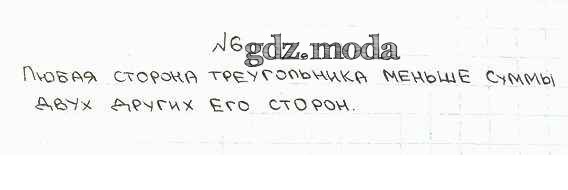 №6
gdz.moda
Любая сторона треугольника меньше суммы
двух других его сторон.